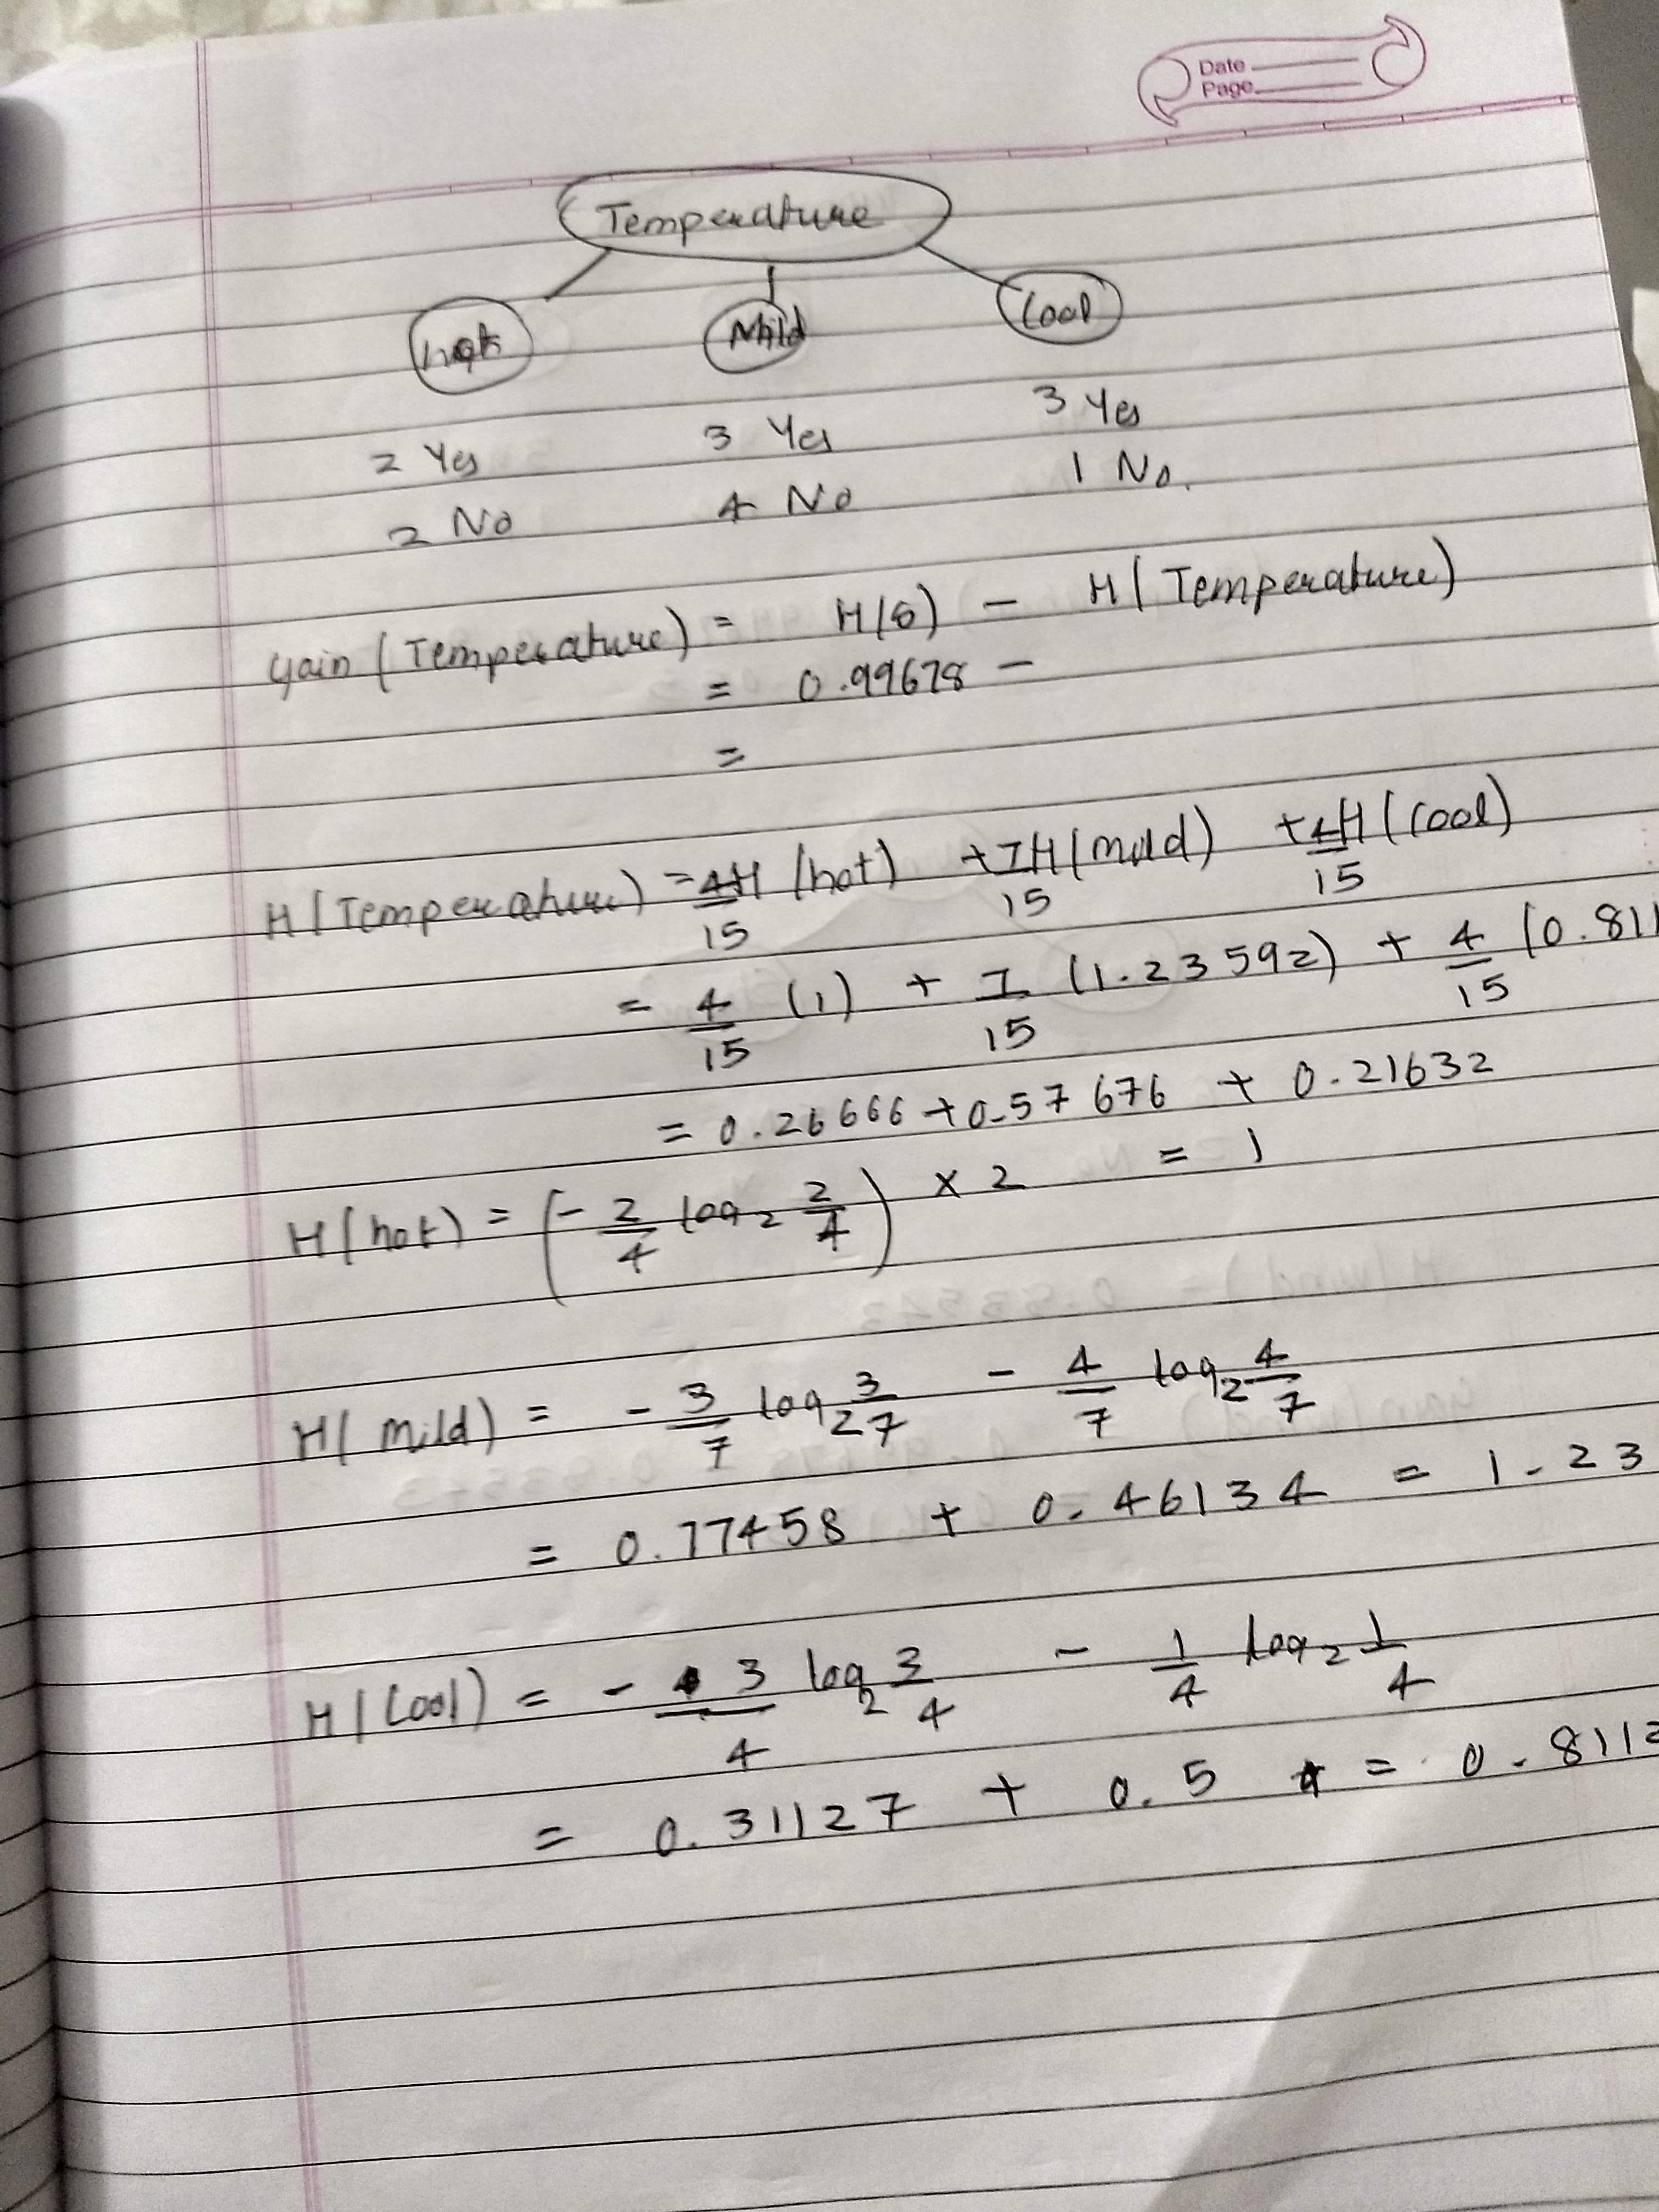 Date
Page
Temperature
hot Mild Cool
2 Yes 3 Yes 3 Yes
2 No 4 No 1 No.
Gain (Temperature) = H(S) - H(Temperature)
= 0.99678 -
=
H(Temperature) = 4/15 H(hot) + 7/15 H(mild) + 4/15 H(Cool)
= 4/15 (1) + 7/15 (1.23592) + 4/15 (0.811
= 0.26666 + 0.57676 + 0.21632
H(hot) = (- 2/4 log₂ 2/4) × 2 = 1
H(Mild) = - 3/7 log₂ 3/7 - 4/7 log₂ 4/7
= 0.77458 + 0.46134 = 1.23
H(Cool) = - 3/4 log₂ 3/4 - 1/4 log₂ 1/4
= 0.31127 + 0.5 = 0.8112